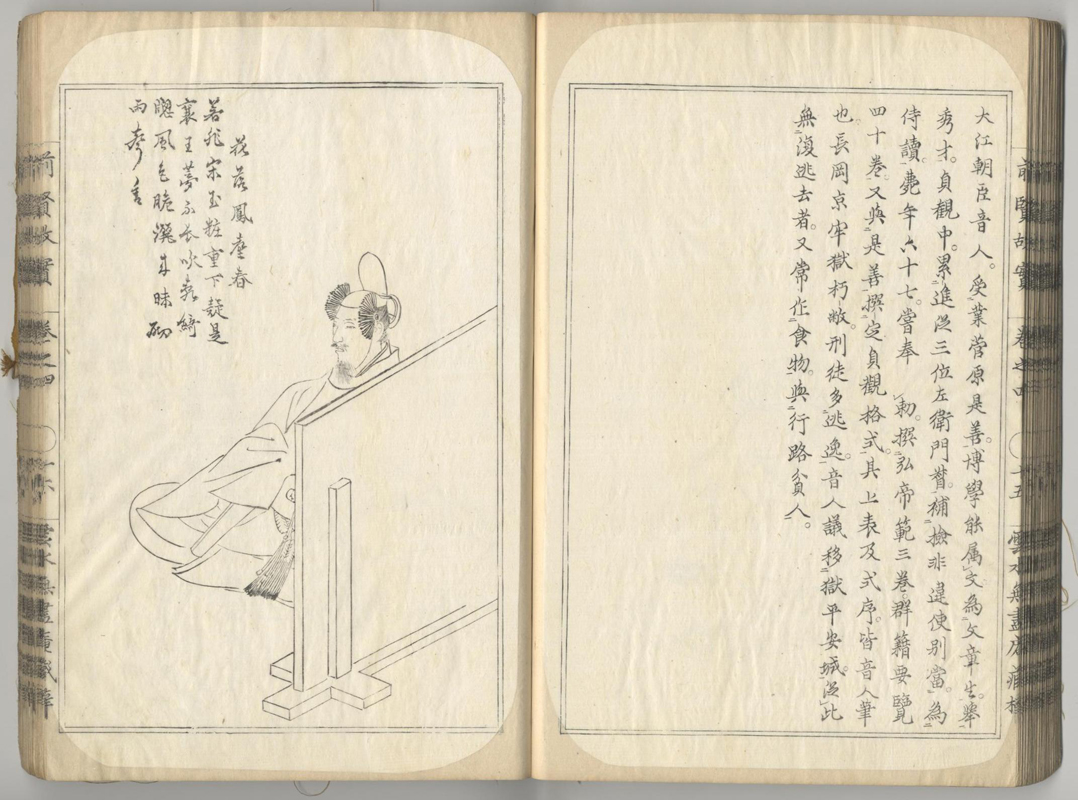 大江朝臣音人。受業菅原是善。博學能属文為文章生。擧
秀才。貞觀中。累進從三位左衛門督。補撿非違使別當。為
侍讀。薨年六十七。嘗奉　勅。撰弘帝範三卷群籍要覽
四十卷。又與是善撰定貞觀格式。其上表及式序。皆音人筆
也。長岡京牢獄朽敝。刑徒多逃逸。音人議移獄平安城。從此
無復逃去者。又常作食物。與行路貧人。
花落鳳臺春
若非宋玉粧重下疑是
襄王夢不長吹氣綺
窓風色脆灑
雨
前賢故實
卷之四
十五
雲水無盡庵藏梓